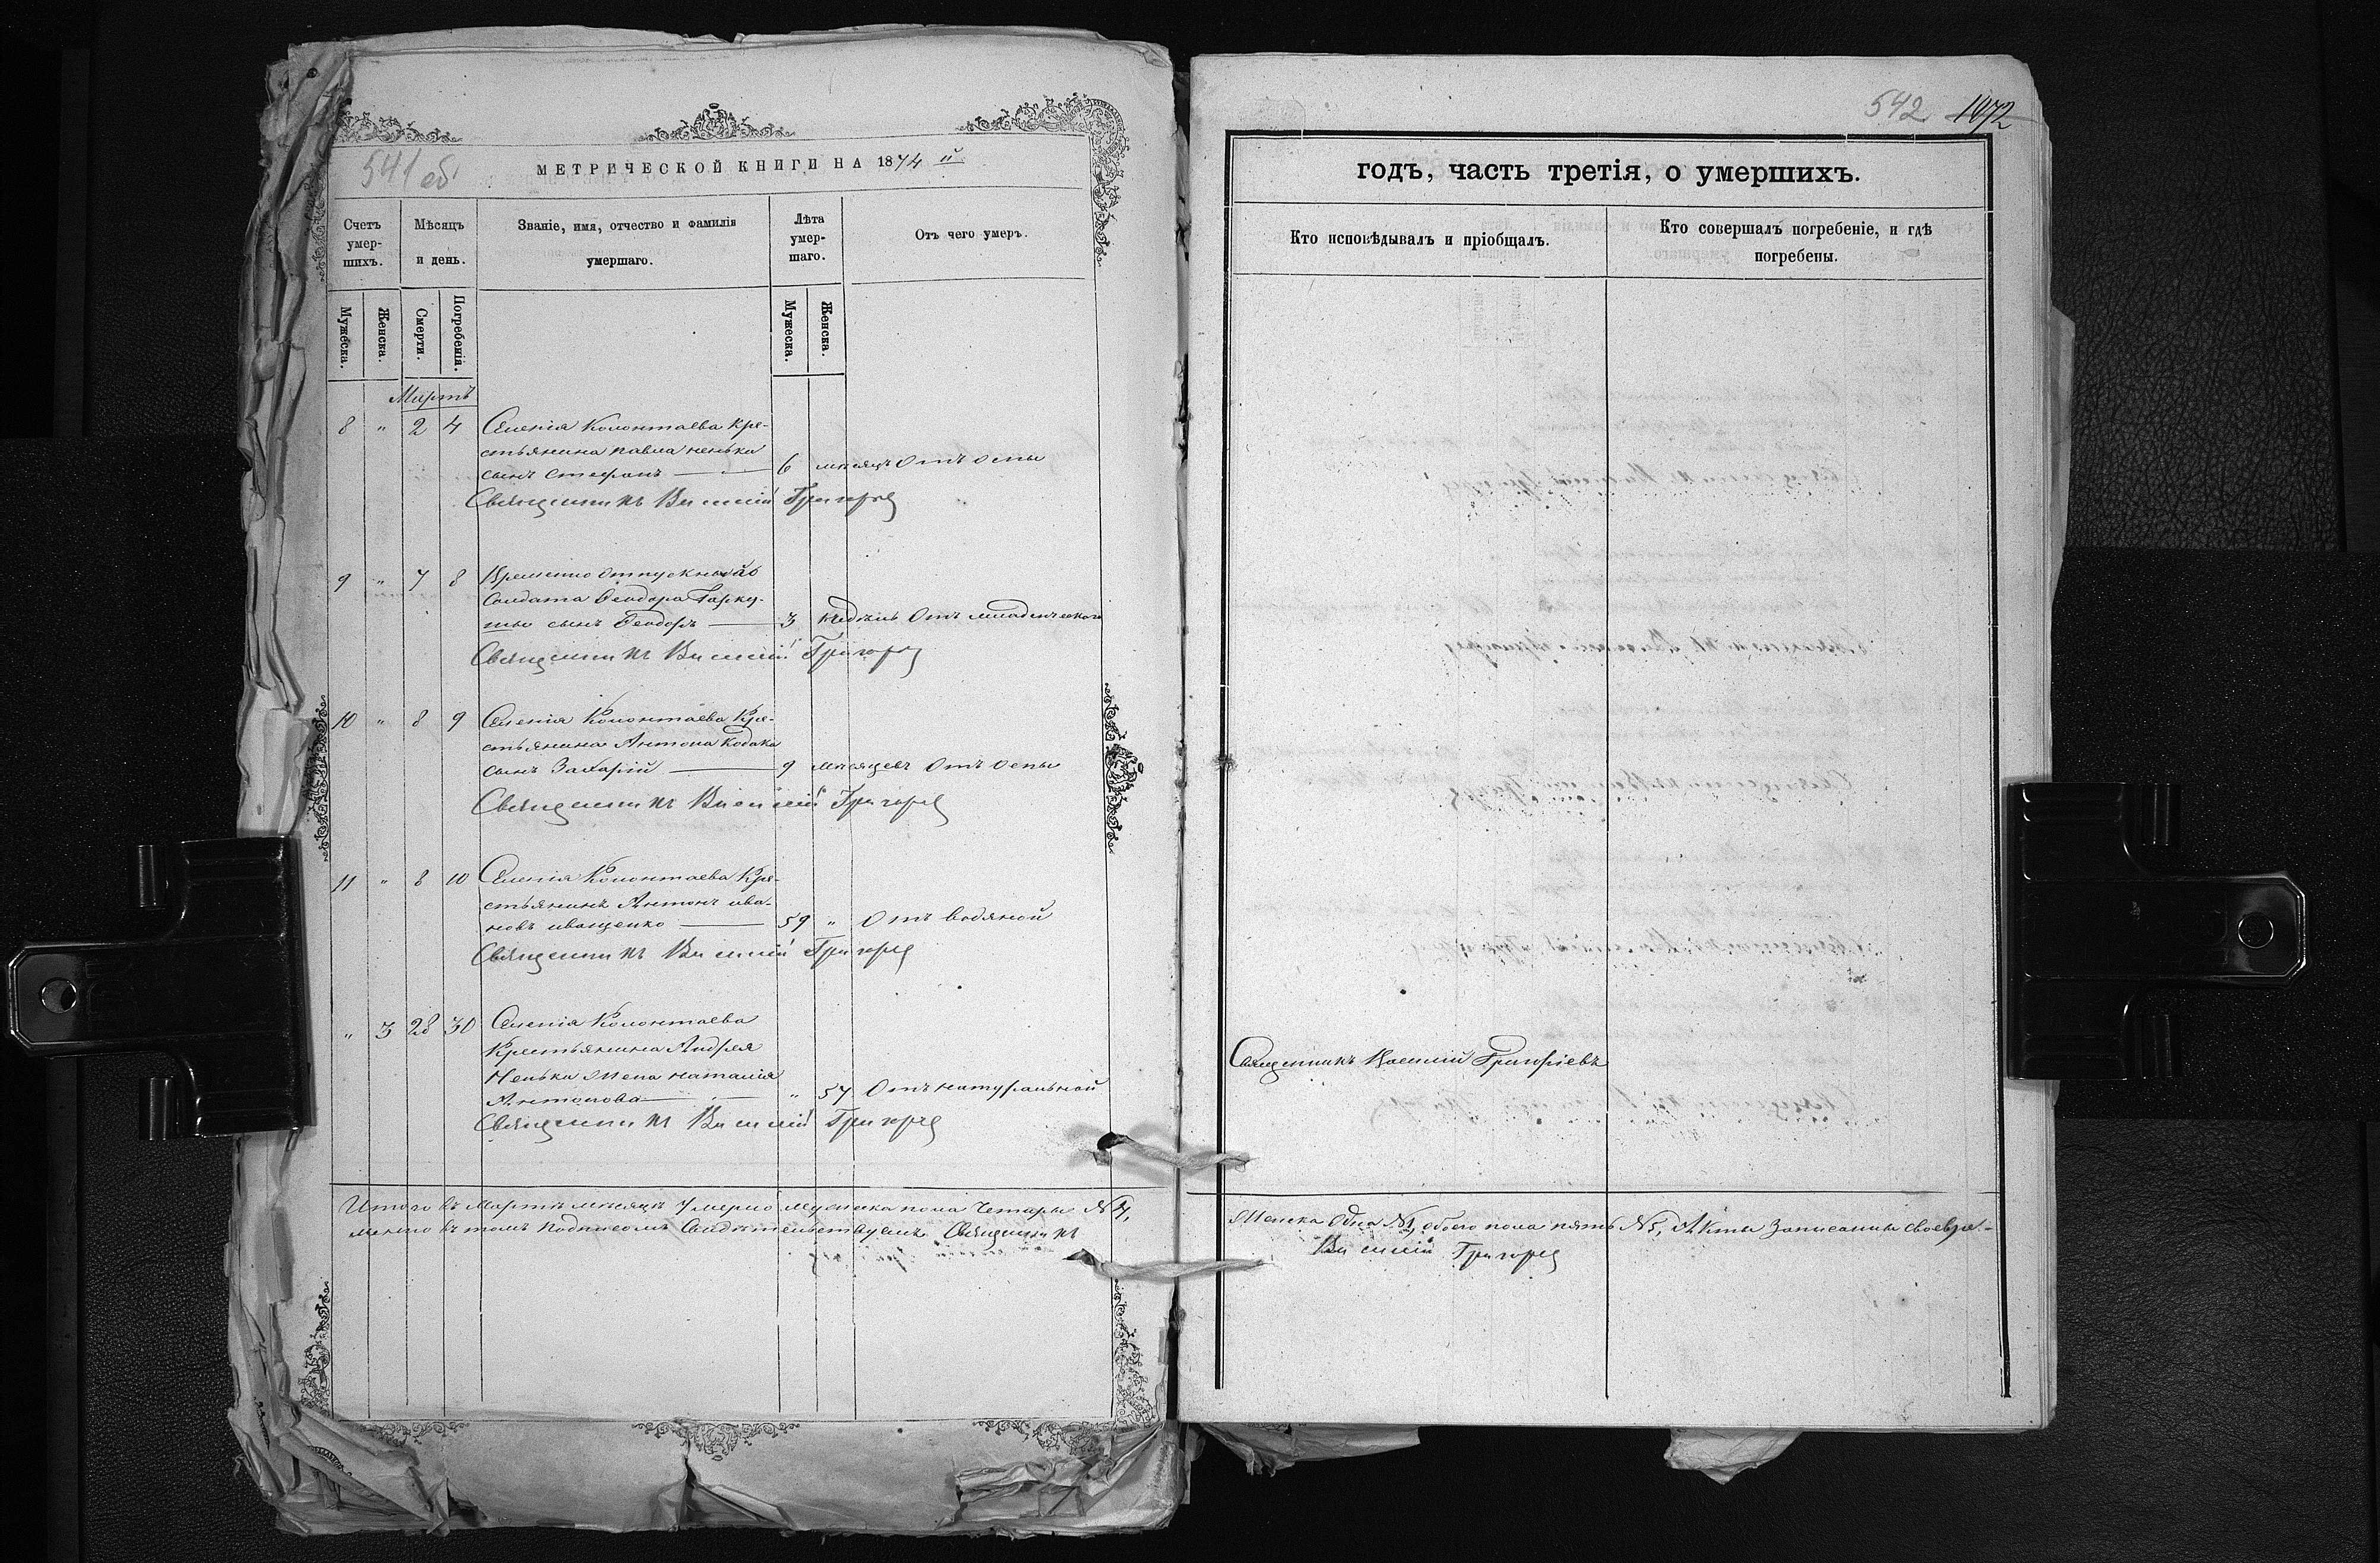 541 об.
МЕТРИЧЕСКОЙ КНИГИ НА 1874 й
Счетъ умер-шихъ.
Мѣсяцъ и день.
Званіе, имя, отчество и фамилія умершаго.
Лѣта умер-шаго.
Отъ чего умеръ.
Мужеска.
Женска.
Смерти.
Погребенія.
Мужеска.
Женска.
Мартъ
8 " 2 4 Селенія Колонтаева Кре-
стьянина павла ненька
сынъ стефанъ — 6 мѣсяцъ Отъ оспы
Священникъ Василій Григорьев
9 " 7 8 Временно отпускнаго
Солдата Феодора Гарку-
ши сынъ Феодоръ — 3 недѣль Отъ младенческого
Священникъ Василій Григорьев
10 " 8 9 Селенія Колонтаева Кре-
стьянина Антона Кодака
сынъ Захарій — 9 мѣсяцевъ Отъ оспы
Священникъ Василій Григорьев
11 " 8 10 Селенія Колонтаева Кре-
стьянинъ Антонъ ива-
новъ иващенко — 59 " Отъ водяной
Священникъ Василій Григорьев
" 3 28 30 Селенія Колонтаева
Крестьянина Андрея
Ненька жена наталія
Антонова — " 57 Отъ натуральной
Священникъ Василій Григорьев
Итого въ Мартѣ мѣсяцѣ Умерло мужеска пола Четыре №4,
менно въ томъ подписомъ Свидѣтельствуемъ Священникъ
542 1072
годъ, часть третія, о умершихъ.
Кто исповѣдывалъ и пріобщалъ.
Кто совершалъ погребеніе, и гдѣ погребены.
Священникъ Василій Григоріевъ
Женска Одна №1, обоего пола пять №5, Акты Записанны своевре-
Василій Григорьев